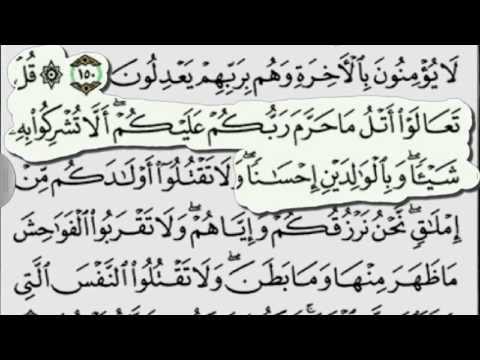 لَا يُؤْمِنُونَ بِٱلْأَخِرَةِ وَهُم بِرَبِّهِمْ يَعْدِلُونَ ١٥٠ ۞ قُلْ
تَعَالَوْا۟ أَتْلُ مَا حَرَّمَ رَبُّكُمْ عَلَيْكُمْ ۖ أَلَّا تُشْرِكُوا۟ بِهِۦ
شَيْـًٔا ۖ وَبِٱلْوَٰلِدَيْنِ إِحْسَٰنًا ۖ وَلَا تَقْتُلُوٓا۟ أَوْلَٰدَكُم مِّنْ
إِمْلَٰقٍ ۖ نَّحْنُ نَرْزُقُكُمْ وَإِيَّاهُمْ ۖ وَلَا تَقْرَبُوا۟ ٱلْفَوَٰحِشَ
مَا ظَهَرَ مِنْهَا وَمَا بَطَنَ ۖ وَلَا تَقْتُلُوا۟ ٱلنَّفْسَ ٱلَّتِى